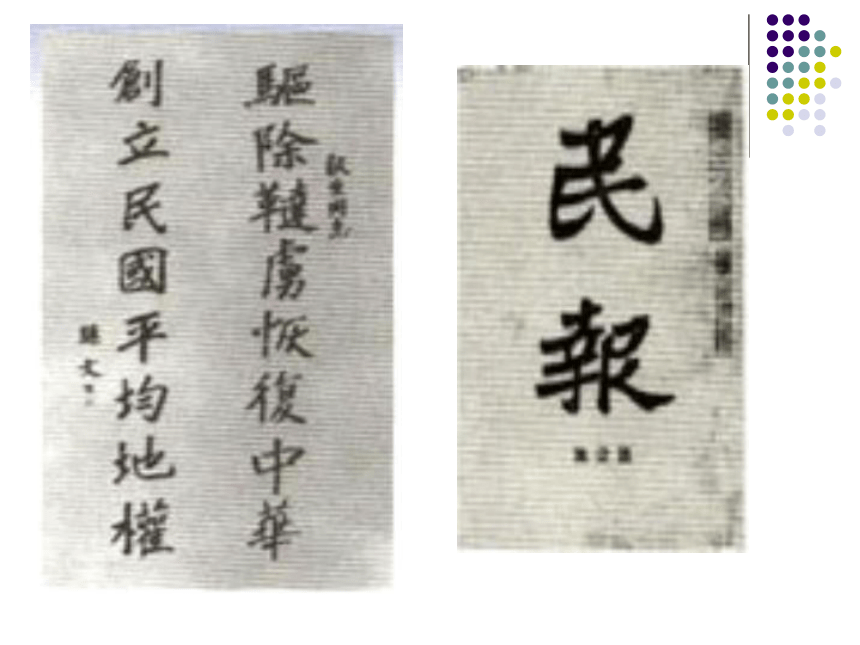 驅除韃虜恢復中華
創立民國平均地權
孫文
民報